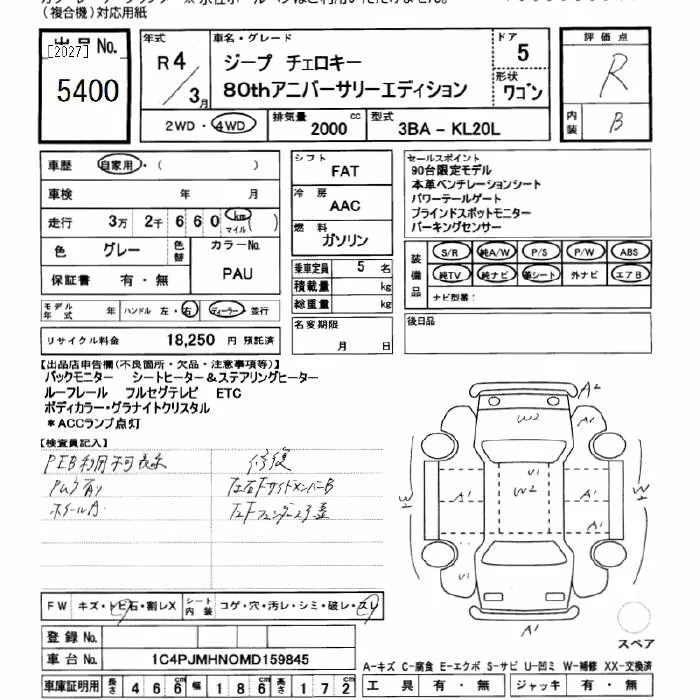 (複合機)対応用紙
出品No.
[2027]
5400
年式
R4/3月
車名・グレード
ジープ チェロキー
80thアニバーサリーエディション
ドア
5
形状
ワゴン
評価点
R
内装
B
2WD・4WD
排気量
2000
cc
型式
3BA - KL20L
車歴
自家用・( )
車検
年 月
走行
3万 2千 6 6 0
km
マイル
( )
色
グレー
色替
カラーNo.
PAU
保証書
有・無
モデル年式
年
ハンドル 左・右
ディーラー・並行
リサイクル料金
18,250 円 預託済
シフト
FAT
冷房
AAC
燃料
ガソリン
乗車定員
5 名
積載量
kg
総重量
kg
名変期限
月 日
セールスポイント
90台限定モデル
本革ベンチレーションシート
パワーテールゲート
ブラインドスポットモニター
パーキングセンサー
装備品
S/R 純A/W P/S P/W ABS
純TV 純ナビ 革シート 外ナビ エアB
ナビ型番:
後日品
【出品店申告欄(不良箇所・欠品・注意事項等)】
バックモニター シートヒーター&ステアリングヒーター
ルーフレール フルセグテレビ ETC
ボディカラー・グラナイトクリスタル
*ACCランプ点灯
【検査員記入】
修復
A2
W2
U1
W2
A1
A1
A1
U1
A1
A1
スペア
FW
キズ・トビ石・割レX
シート内装
コゲ・穴・汚レ・シミ・破レ・スレ
登録No.
車台No.
1C4PJMHN0MD159845
車庫証明用
長さ
466
幅
186
高さ
172
A-キズ C-腐食 E-エクボ S-サビ U-凹ミ W-補修 XX-交換済
工具
有・無
ジャッキ
有・無